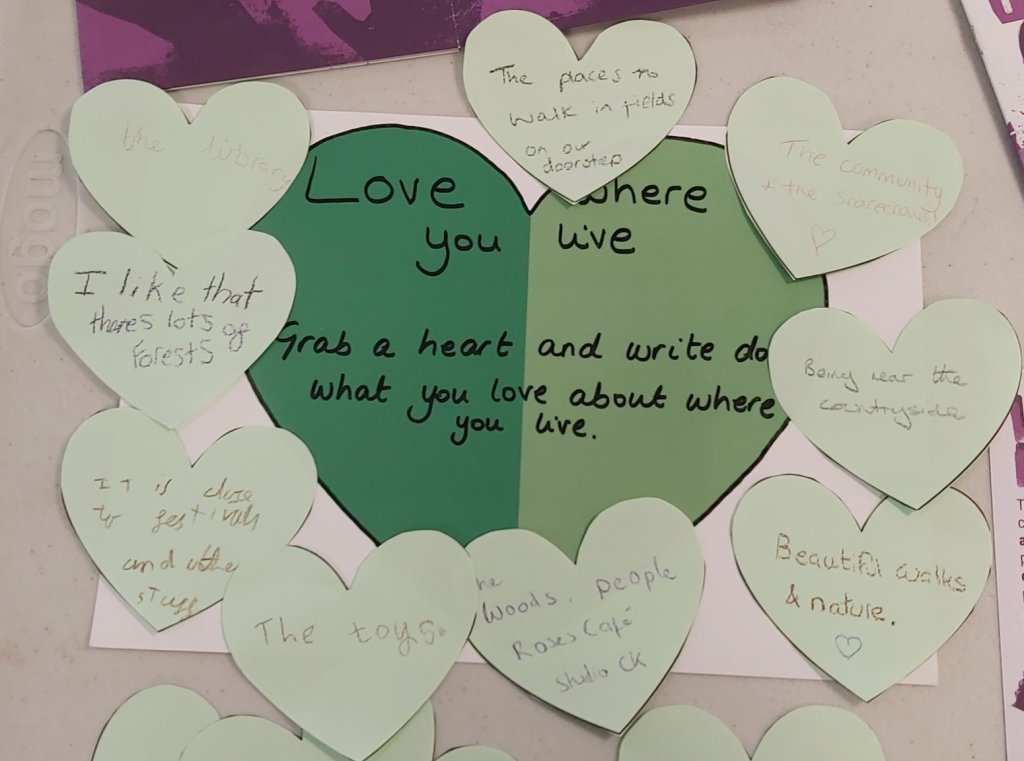 The places to
walk in fields
on our
doorstep
the library
The community
+ the scarecrows!
Love where
you live
I like that
theres lots of
Forests
Grab a heart and write do
what you love about where
you live.
Being near the
countryside
IT is close
to festivals
and othe
stuff
Beautiful walks
& nature.
The toys.
he
Woods. people
Roses Café
Studio CK
mogo